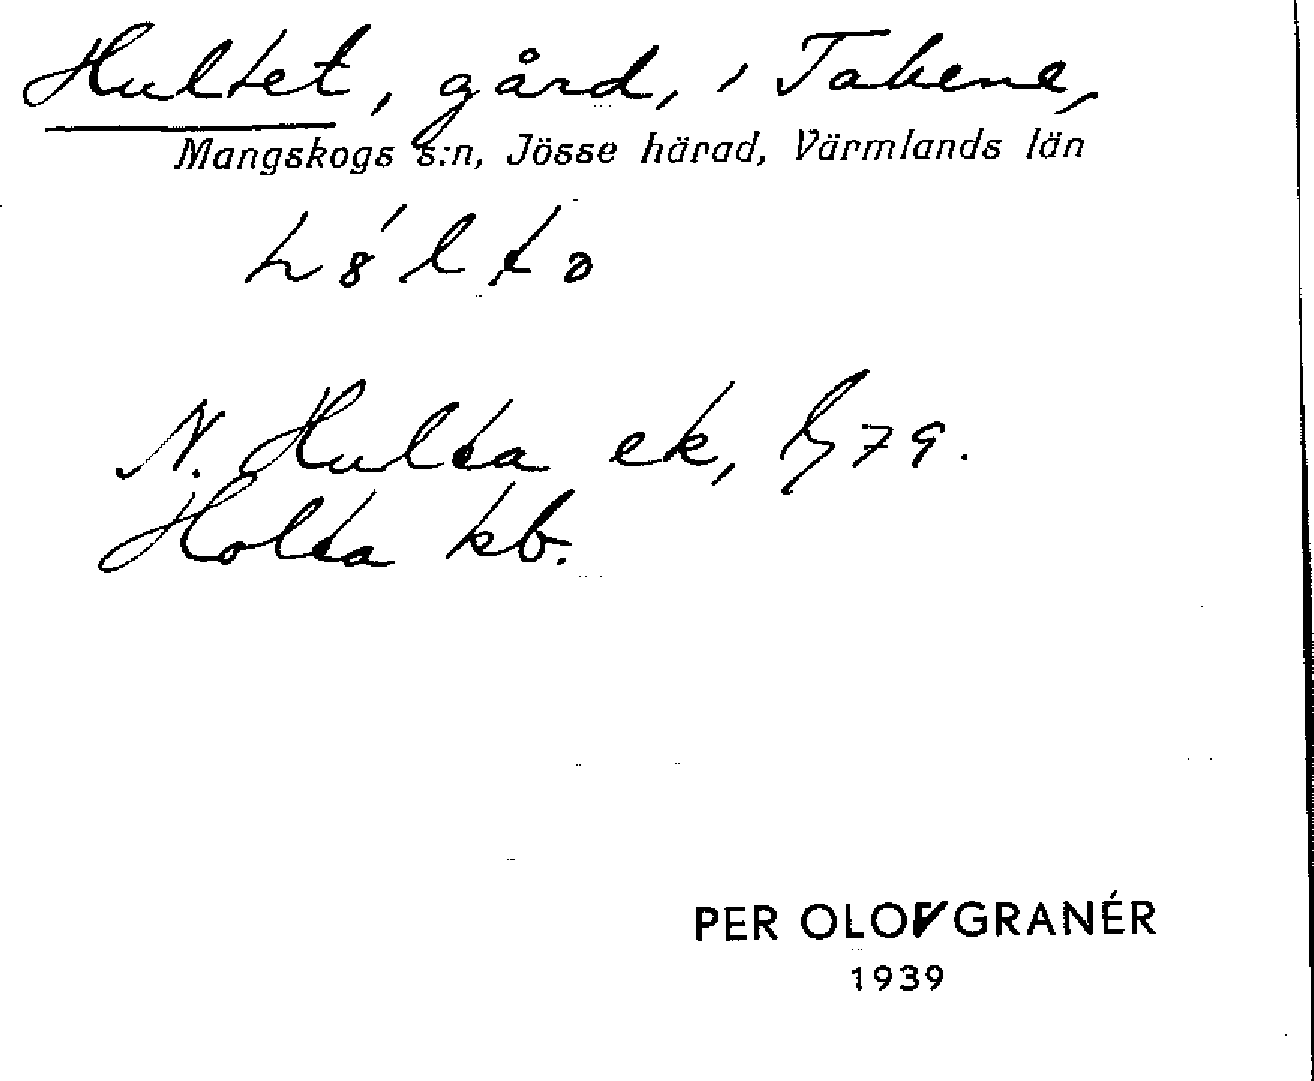 Hultet, gård, i Takene,
Mangskogs s:n, Jösse härad, Värmlands län
N. Hulta ek, 79.
Holta kb.
PER OLOV GRANÉR
1939